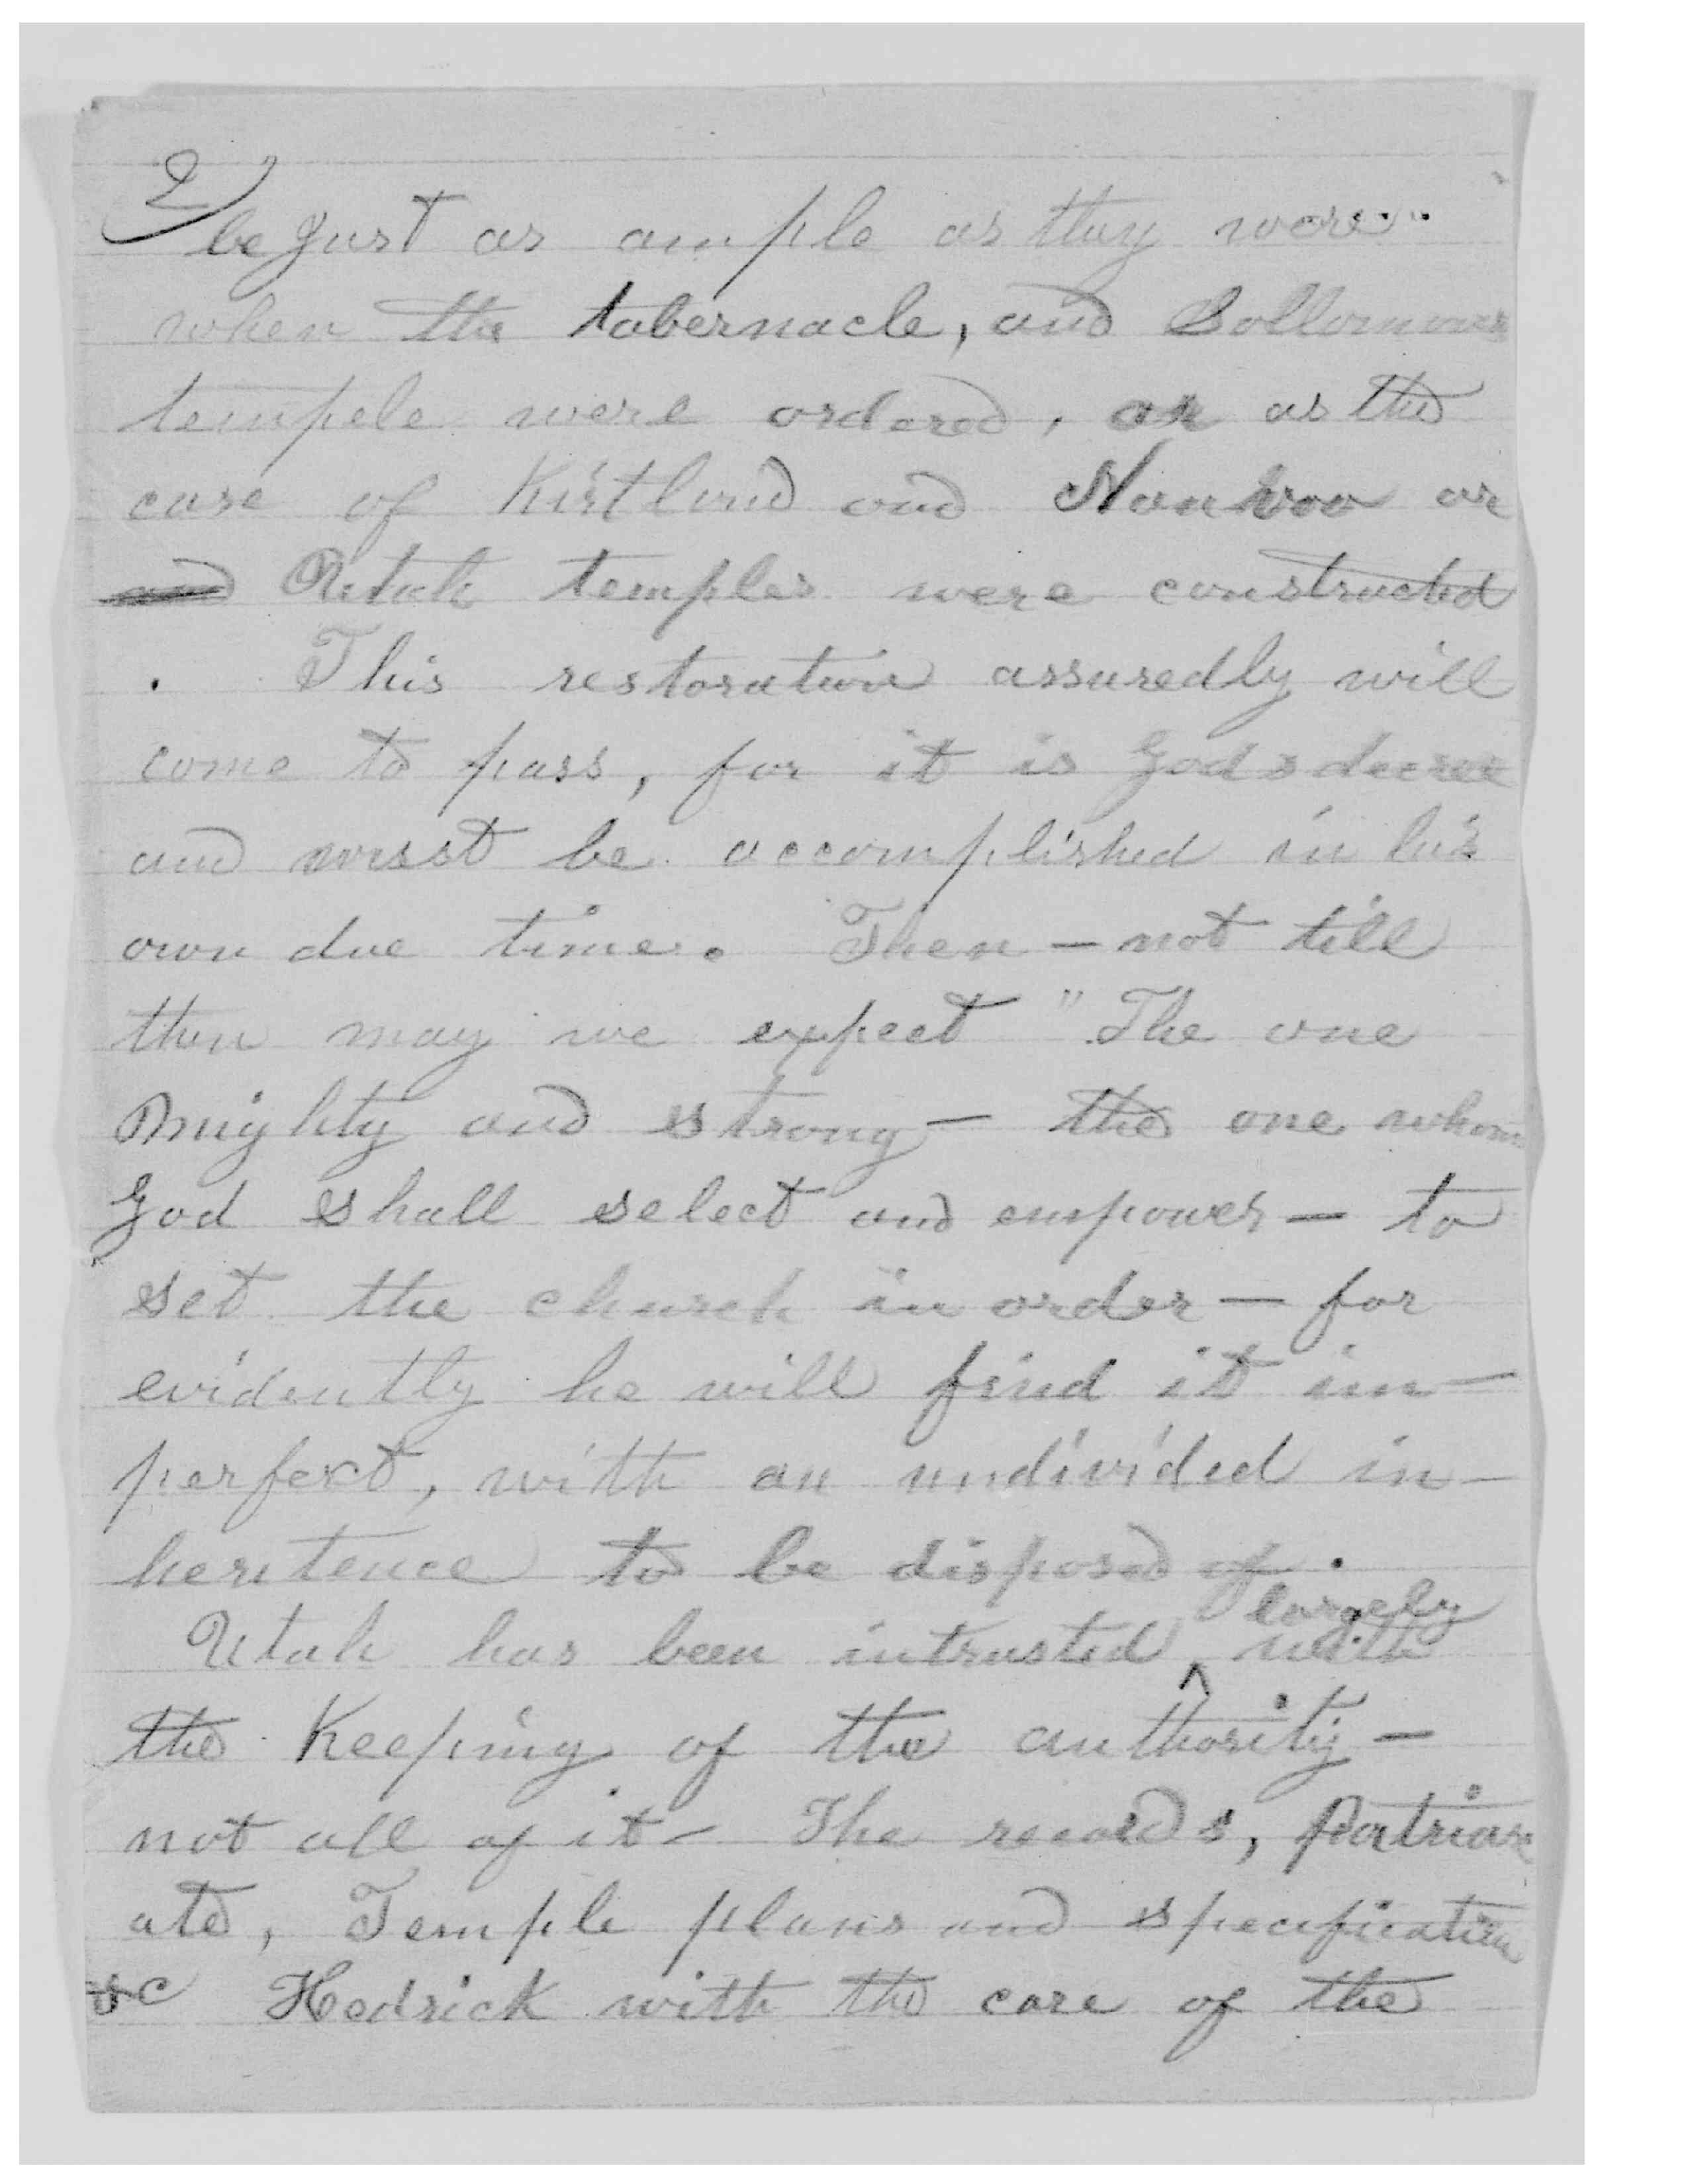 2)
be Just as ample as they were
when the tabernacle, and Sollomons
tempele were ordered, or as the
case of Kirtland and Nauvoo or
and Utah temples were constructed
. This restoration assuredly will
come to pass, for it is Gods decree
and must be accomplished in his
own due time. Then — not till
then may we expect "The one
mighty and strong — the one whom
God shall select and empower — to
set the church in order — for
evidently he will find it im-
perfect, with an undivided in-
heritence to be disposed of.
largely
Utah has been intrusted ^ with
the Keeping of the authority —
not all of it — The records, Patriar
ate, Temple plans and specification
&c Hedrick with the care of the